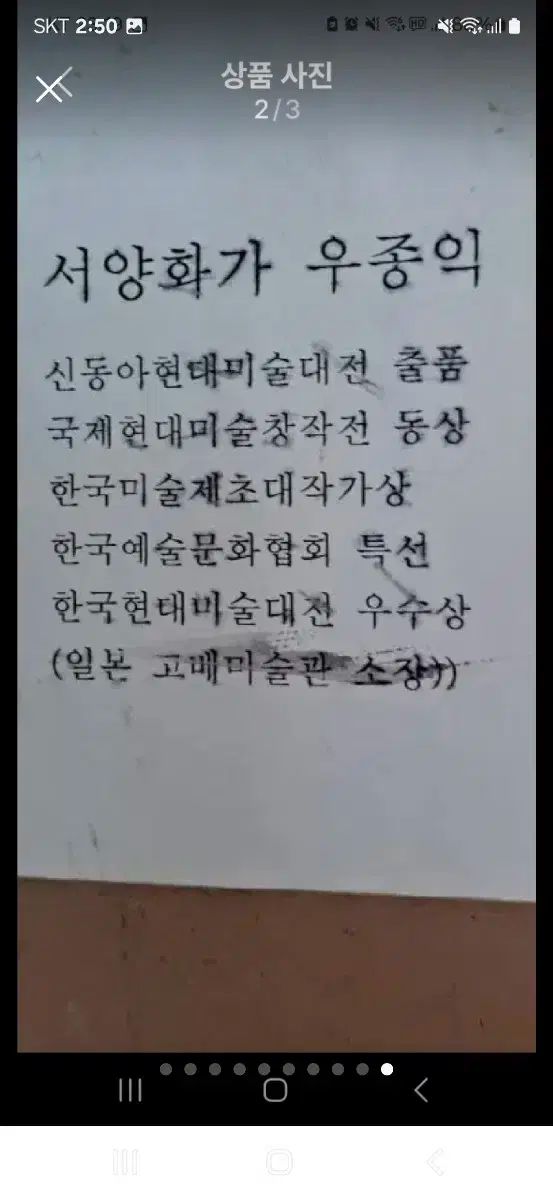 SKT 2:50
상품 사진
2/3
서양화가 우종익
신동아현대미술대전 출품
국제현대미술창작전 동상
한국미술제초대작가상
한국예술문화협회 특선
한국현대미술대전 우수상
(일본 고배미술관 소장))